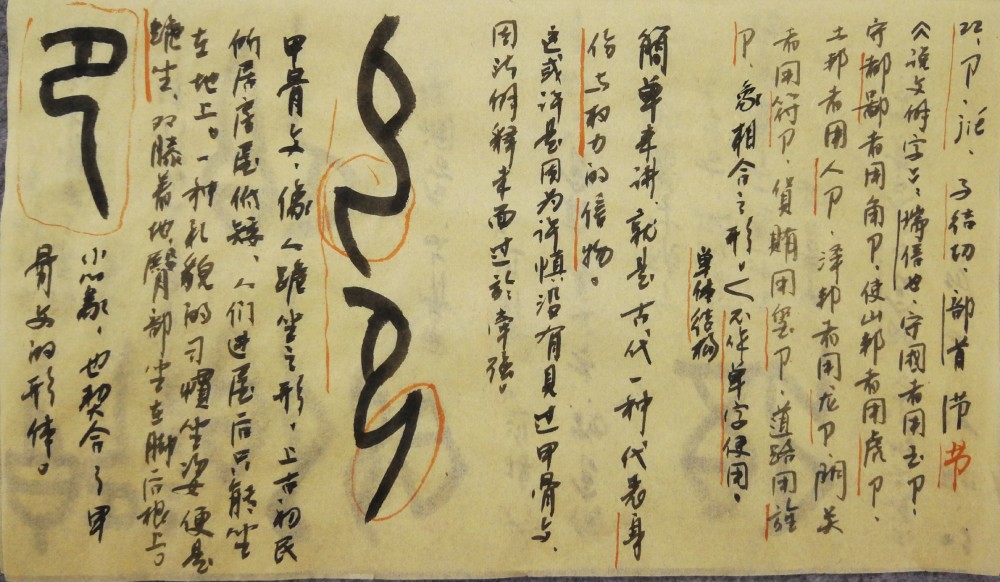 卩、子结切、部首节节
《说文解字》：瑞信也。守国者用玉卩、
守都鄙者用角卩、使山邦者用虎卩、
土邦者用人卩、泽邦者用龙卩、门关
者用符卩、货贿用玺卩、道路用旌
卩、象相合之形。<不作单字使用。
单体结构
简单来讲，就是古代一种代表身
份与权力的信物。
这或许是因为许慎没有见过甲骨文、
因此解释未面过於牵强。
甲骨文，像人跪坐之形，上古初民
所居房屋低矮，人们进屋后只能坐
在地上。一种礼貌的习惯坐姿便是
跪坐，双膝着地，臀部坐在脚后根上。
小篆，也契合了甲
骨文的形体。